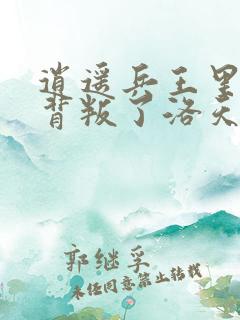 逍遥兵王里
背叛了洛天
郭继孚
未经同意禁止转载